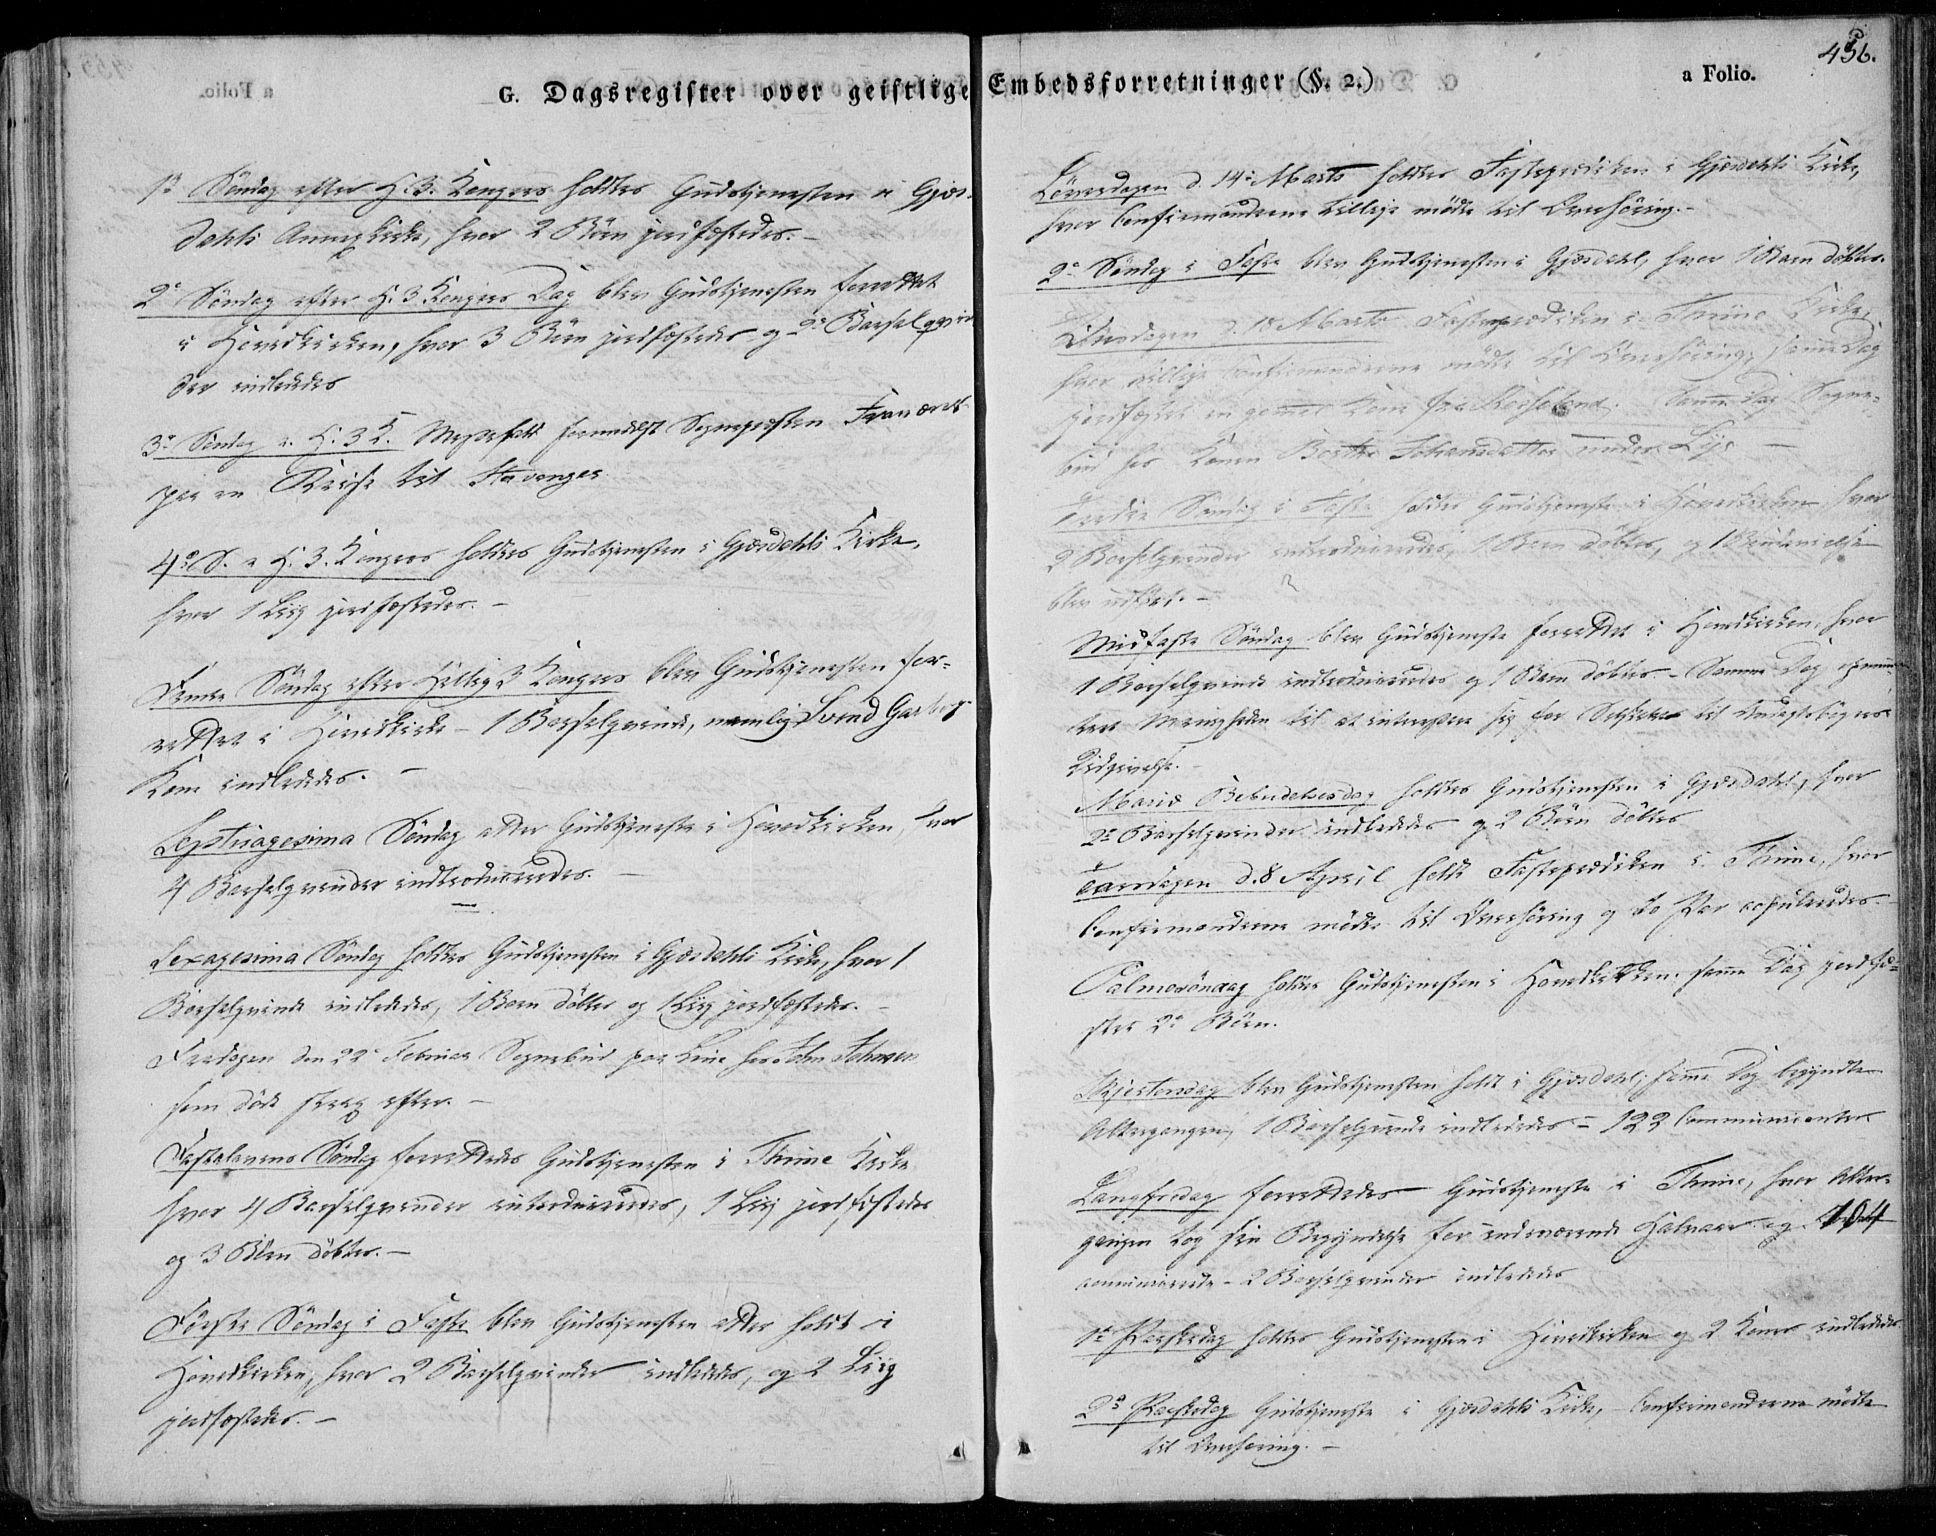 G. Dagsregister over geistlige Embedsforretninger (§. 2.)
a Folio. 456.
1ste Søndag efter H. 3. Konger holdtes Gudstjenesten i Gjes-
dahls Annexkirke, hvor 2 Børn jordfæstedes. –
2den Søndag efter H. 3 Kongers Dag blev Gudstjenesten forrettet
i Hovedkirken, hvor 3 Børn jordfæstedes og 2de Barselqvin
der indlededes
3die Søndag e. H. 3 K. Messefald formedelst Sognepræsten
paa en Reise til Stavanger.
4de S. e H. 3. Konger holdtes Gudstjenesten i Gjesdahls Kirke,
hvor 1 Liig jordfæstedes. –
Femte Søndag efter Hellig 3 Konger blev Gudstjenesten for-
rettet i Hovedkirke – 1 Barselqvinde, nemlig Svend Garborgs
Kone indlededes. –
Septuagesima Søndag atter Gudstjeneste i Hovedkirken, hvor
4 Barselqvinder introduceredes. –
Sexagesima Søndag holdtes Gudstjenesten i Gjesdahls Kirke, hvor 1
Barselqvinde indlededes, 1 Barn døbtes og 1 Liig jordfæstedes. –
Fredagen den 22de Februar Sognebud paa Line hos John Johnsen
som døde strax efter. –
Fastelavens Søndag forrettedes Gudstjenesten i Thime Kirke
hvor 4 Barselqvinder introduceredes, 1 Liig jordfæstedes
og 3 Børn døbtes. –
Første Søndag i Faste blev Gudstjenesten atter holdt i
Hovedkirken, hvor 2 Barselqvinder indlededes, og 2 Liig
jordfæstedes. –
Løverdagen d. 14de Marts holdtes Fasteprædiken i Gjesdahls Kirke,
hvor Confirmanderne tillige mødte til Overhøring. –
2den Søndag i Faste blev Gudstjenesten i Gjesdahl, hvor 1 Barn døbtes.
d. 18 Marts Fasteprædiken i Thime Kirke,
hvor tillige Confirmanderne mødte til Overhøring, samme Dag
jordfæstet en gammel Kone fra. Samme Dag Sogne-
bud hos Konen Berthe Johansdatter under Lye –
Tredie Søndag i Faste holdtes Gudstjeneste i Hovedkirken hvor
2 Barselqvinder introduceredes, Børn døbtes, og 1
blev udført. –
Midfaste Søndag blev Gudstjeneste forrettet i Hovedkirken, hvor
1 Barselqvinde introduceredes og 1 Barn døbtes. – Samme Dag opmun-
tret Menigheden til at interessere sig for til Andagtsbøgers
Udgivelse. –
Mariæ Bebudelsesdag holdtes Gudstjenesten i Gjesdahl, hvor
2de Barselqvinder indlededes og 2 Børn døbtes
d. 8 April holdt Fasteprædiken i Thime, hvor
Confirmanderne mødte til Overhøring og to Par copuleredes.
Palmesøndag holdtes Gudstjenesten i Hovedkirken. samme Dag jordfæ-
stes 2de Børn.
Skjertorsdag blev Gudstjenesten holdt i Gjesdahl; samme Dag begyndte
Altergangen, 1 Barselqvinde indlededes – 122 Communicanter
Langfredag forrettedes Gudstjeneste i Thime, hvor Alter-
gangen tog sin Begyndelse for indeværende Halvaar og
communicerede – 2 Barselqvinder indlededes
1ste Paaskedag holdtes Gudstjenesten i Hovedkirken og 2 Koner indlededes
2den Paaskedag Gudstjeneste i Gjesdahls Kirke, – Confirmanderne mødte
til Overhøring. –